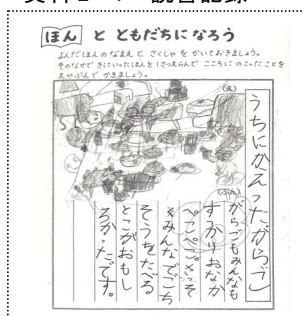 ほん と ともだちになろう
よんだほんのなまえ と さくしゃ を かいておきましょう。
そのなかで きにいったほんを 1さつえらんで こころにのこったことを
えやぶんで かきましょう。
(え)
うちにかえったがらごし
(ぶん)
がらごもみんなも
すっかりおなか
ぺこぺこ。さっそ
くみんなでごち
そうをたべる
とこがおもし
ろかったです。